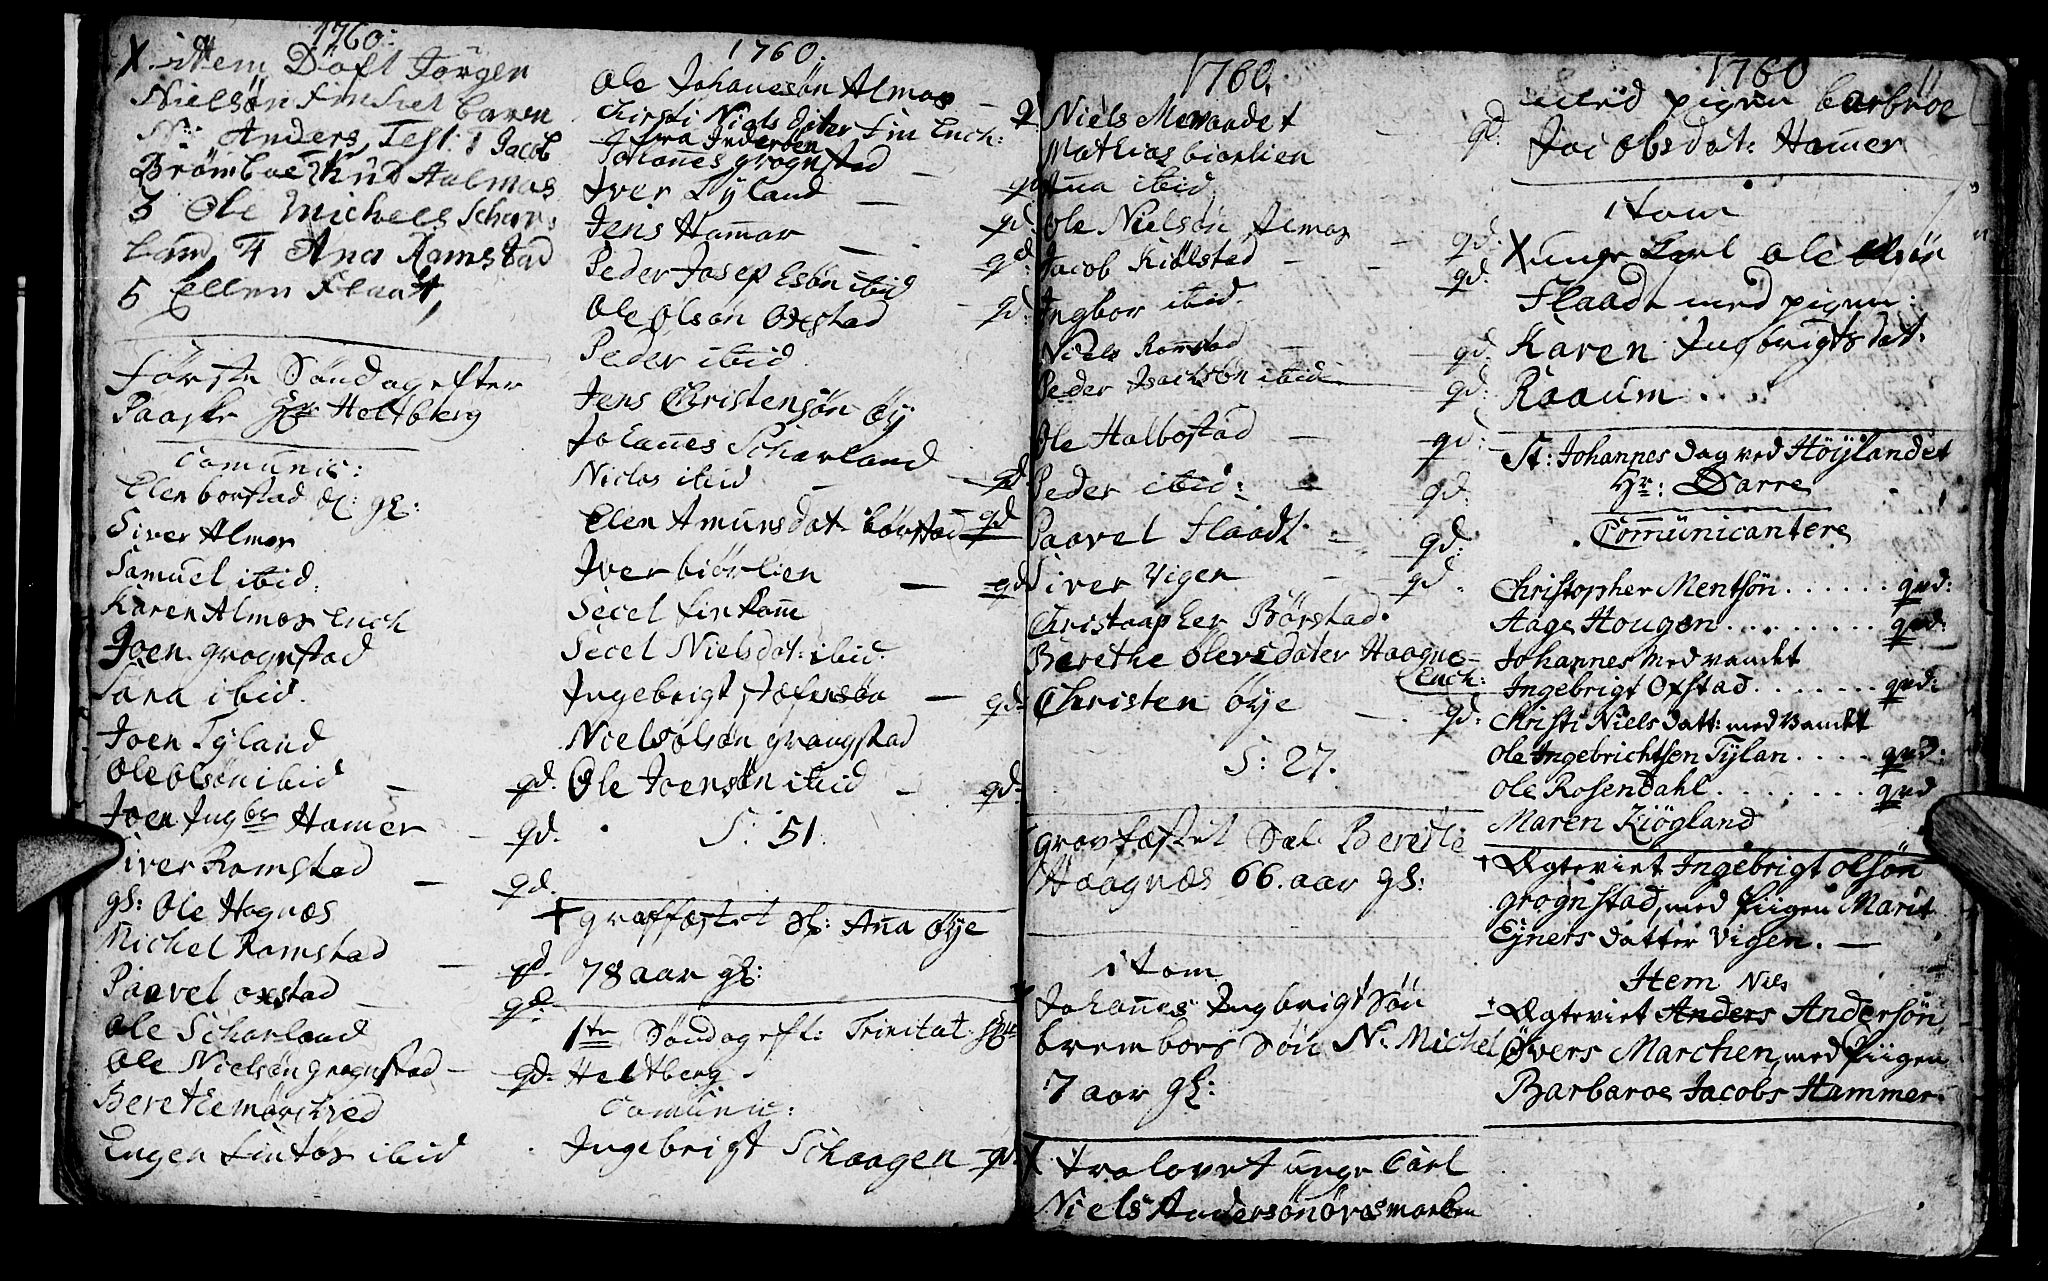 1760:
X item Döft Jörgen
Nielsøn Finset baren
N: Anders, Test: 1 Jacob
Brømboe 2 Knud Aalmas
3 Ole Michels Schar:
land, 4 Ana Ramstad
5 Ellen Flaat,
Første Søndag efter
Paaske Hr Heltberg
Comunic:
Elen borstad Sl: gl:
Siver Almos
Samuel ibid:
Karen Almos Ench
Joen grognstad
Sara ibid.
Joen Tyland
Ole Olsøn ibid — qd.
Joen Ingbr Hamer — qd.
Siver Ramstad — qd.
gl: Ole Hagnæs
Michel Ramstad — qd.
Paavel oxstad — qd:
Ole Scharland
Ole Nielsøn grognstad — qd.
Berethe mørchved
Engen ibid
1760.
Ole Johanesøn Almos —
Chirsti Niels diter Fin Ench:
fra Inderøen
Johanes grognstad —
Iver Tyland — qd
Jens Hamar — qd.
Peder Josep Esøn ibid qd:
Ole Olsøn Oxstad — qd:
Peder ibid.
Jens Christensøn Øy
Johanes Scharland
Niclas ibid — qd
Elen Amunsdat børstad qd
Iver biørlien — qd
Sicel finram
Sicel Nielsdat: ibid.
Ingebrigt stefensøn — qd:
Niels ølsøn grongstad
Ole Joensøn ibid — qd:
S: 51.
+ graffæstet Sl: Ana Øye
78 aar gl:
1te Søndag eft: Trinitat: Hr
Heltberg
Comunic:
Ingebrigt Schaagen — qd.
1760.
Niels Mevaadet — qd.
Mathias biørlien
Ana ibid
Ole Nielsøn Almos — qd.
Jacob Kiølstad — qd.
Ingbor ibid.
Niels Ramstad — qd.
Peder Isachsøn ibid — qd:
Ole Halbostad — qd:
Peder ibid: — qd.
Paavel Flaadt — qd:
Siver Vigen — qd.
Christopher Børstad.
Berethe Olevsdater Haagne-
Ench:
Christen Øye — qd:
S: 27.
gravfæstet Sal: Berethe
Haagnæs 66. aar gl:
itom
Johanes Ingbrigt Søn
brembors Søn N. Michel
7 aar gl:
X trolovet unge Carl
Niels Andersøn øvremarken
1760 11
med pigen barbroe
Jacobsdat: Hamer
itom
X unge Karl Ole Olsøn
Flaadt med pigen:
Karen Ingbrigts dat.
Raaum . .
St: Johannes Dag ved Høylandet
Hr: Darre
Communicantere
Christopher Mentsøn . . . . . . qvd:
Aage Hougen . . . . . . . . . qvd:
Johannes Medvandet
Ingebrigt Oxstad . . . . . . . qvd:
Christi Niels Datt: medvandet
Ole Ingebrichtsen Tylan . . . . qvd:
Ole Rosendahl . . . . . . . . qvd
Maren Kiøgland
+ Ægteviet Ingebrigt Olsøn
grognstad, med Piigen Marit
Ejners datter Vigen. —
Item Niels
+ Ægteviet Anders Andersøn
Øvers Marchen, med Piigen
Barbaroe Jacobs Hammer.